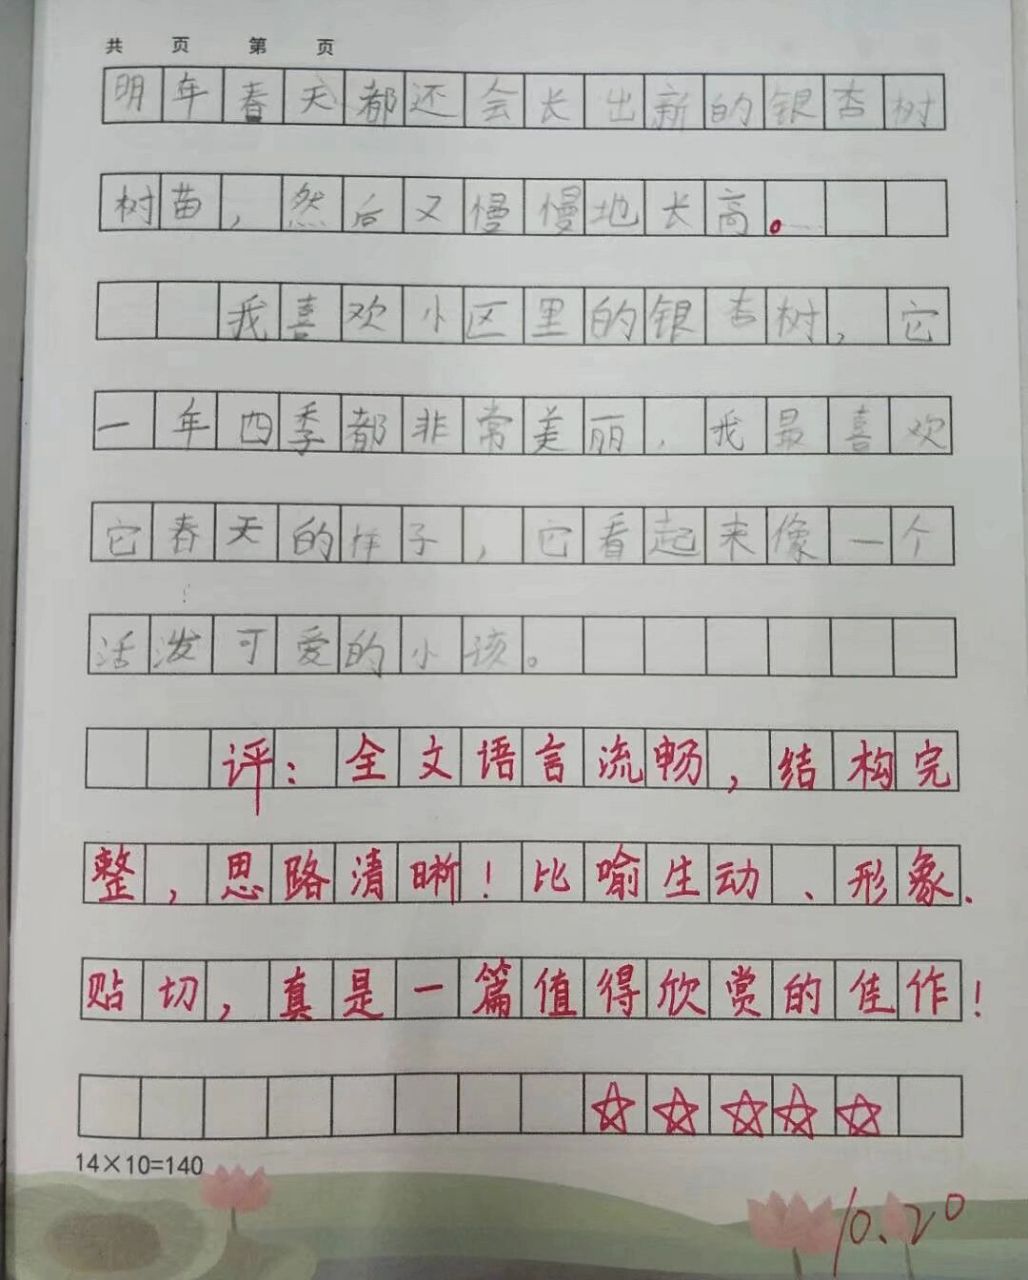 共 页 第 页
明年春天都还会长出新的银杏树
树苗，然后又慢慢地长高。
我喜欢小区里的银杏树，它
一年四季都非常美丽，我最喜欢
它春天的样子，它看起来像一个
活泼可爱的小孩。
评：全文语言流畅，结构完
整，思路清晰！比喻生动、形象、
贴切，真是一篇值得欣赏的佳作！
☆☆☆☆☆
14×10=140
10.20